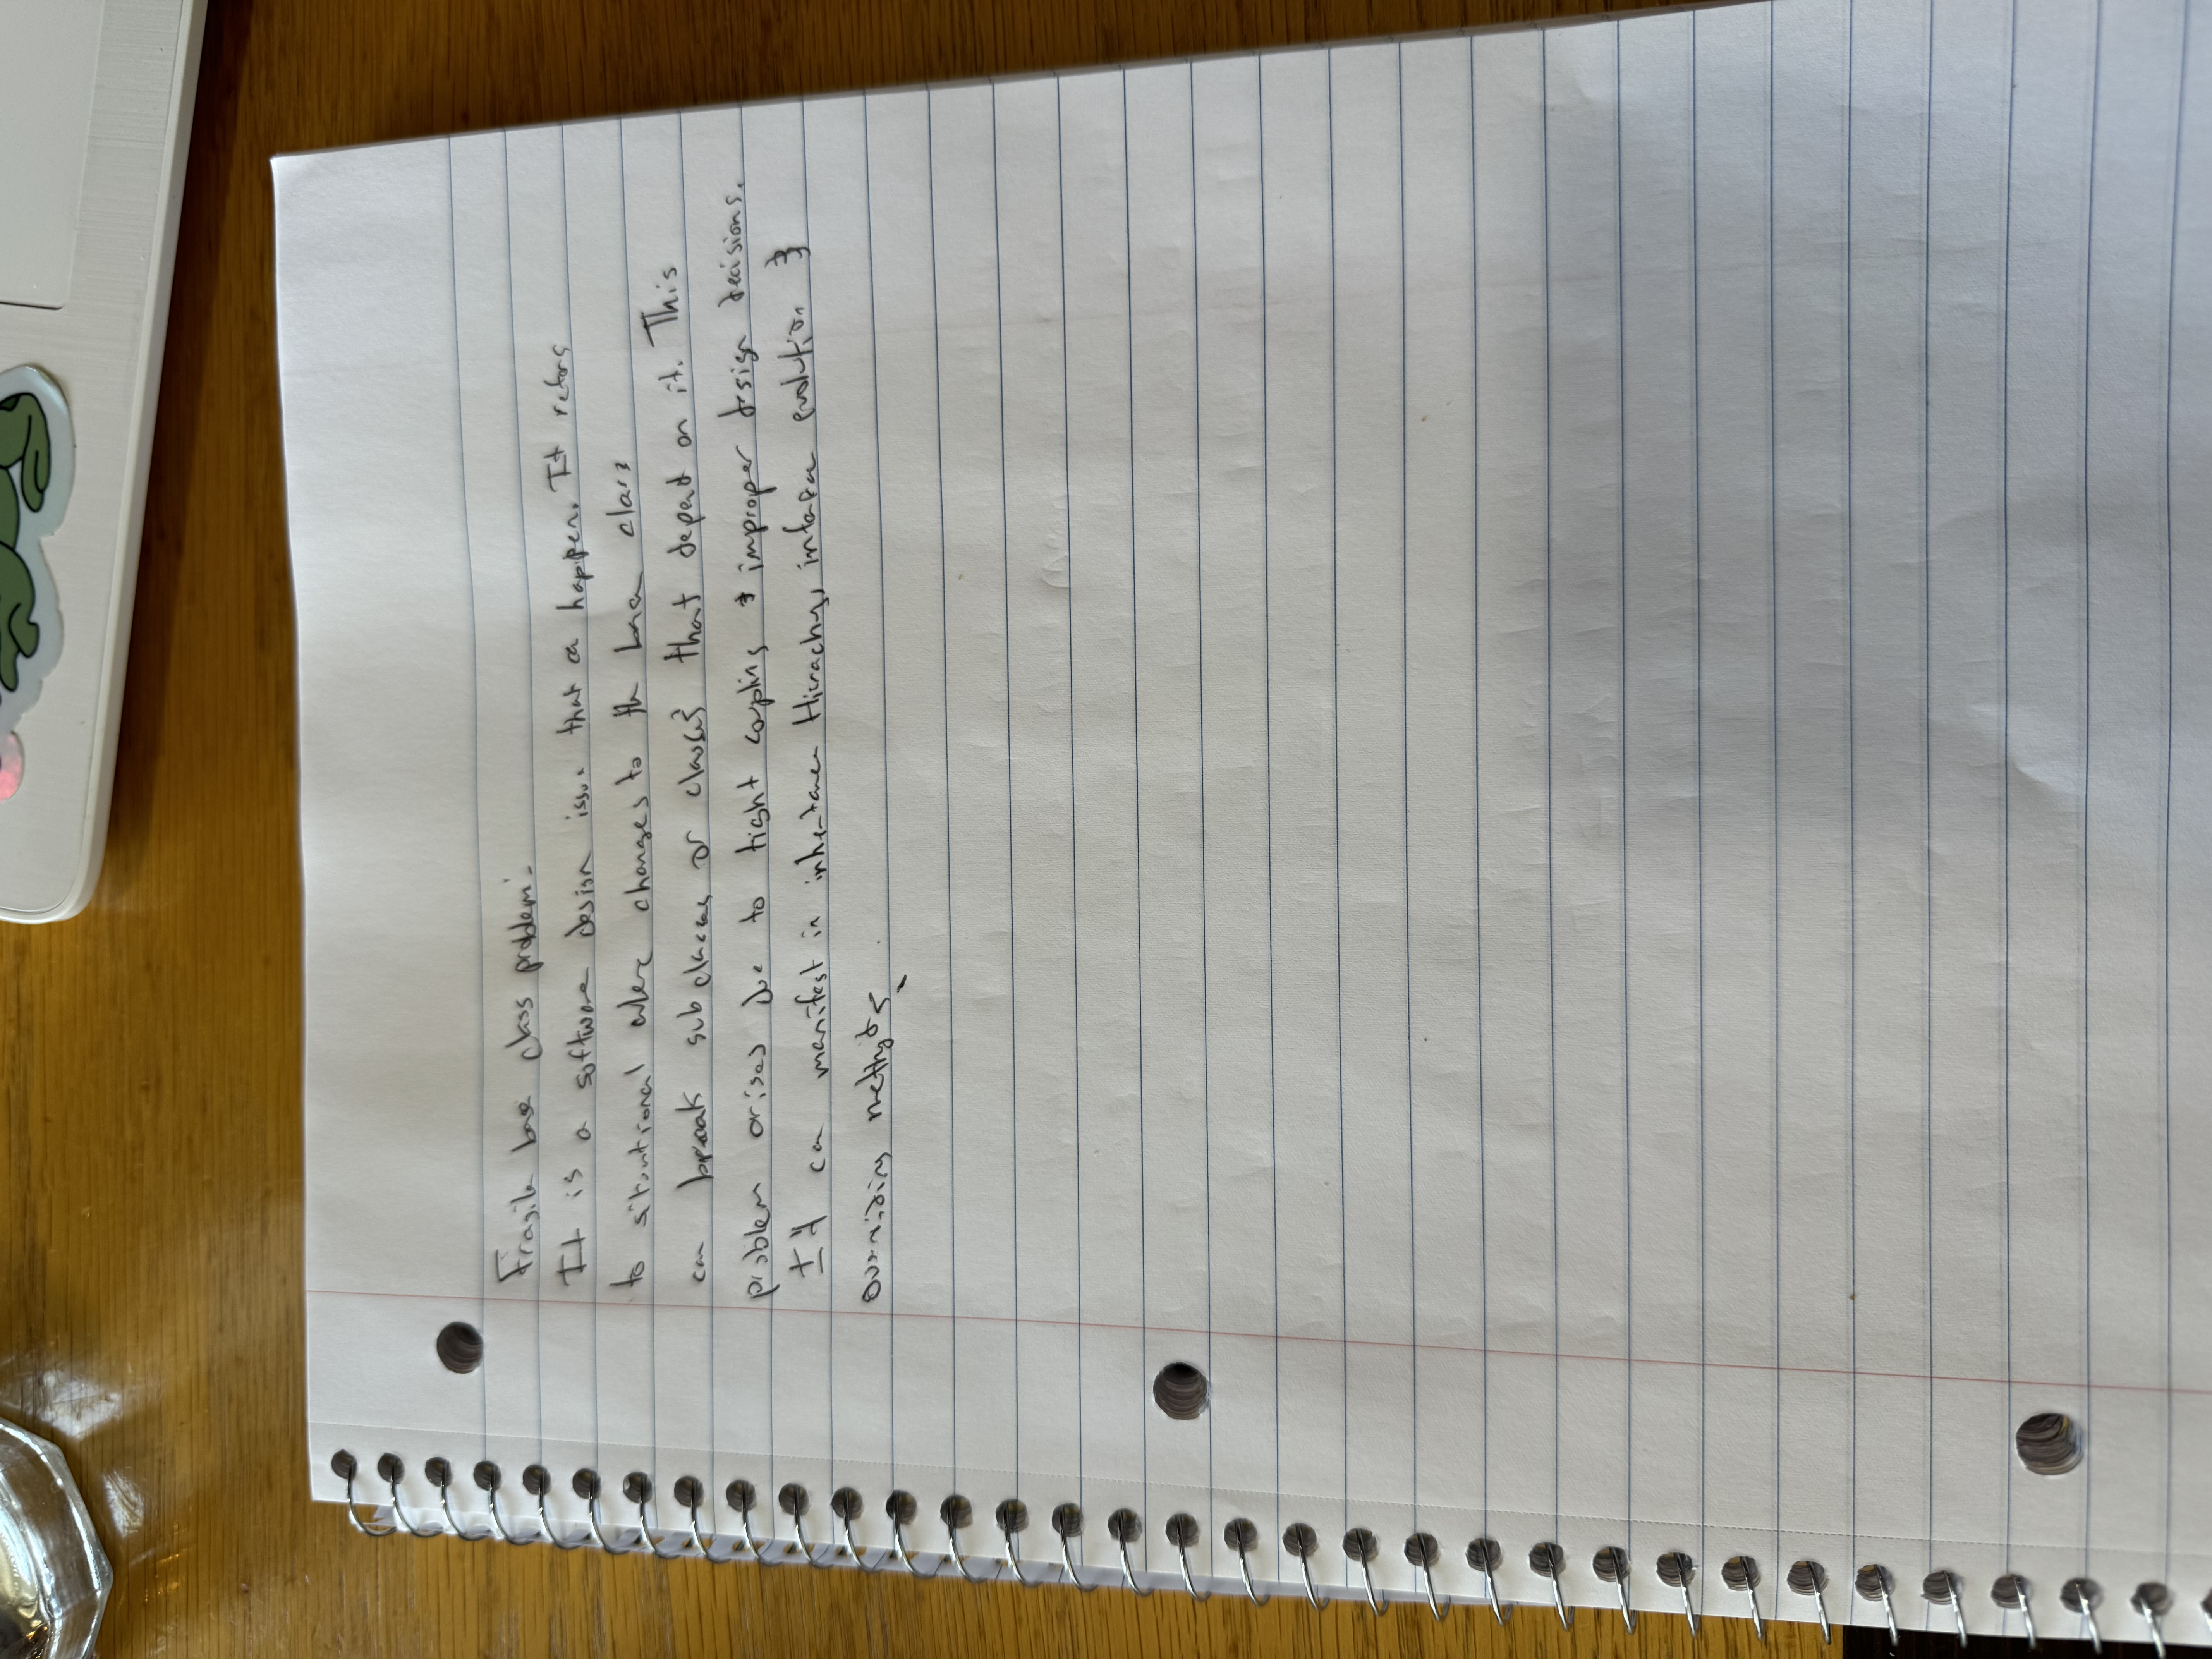 Fragile base class problem:
It is a software design issue that can happen. It refers
to situational where changes to the base class
can break subclasses or classes that depend on it. This
problem arises due to tight coupling & improper design decisions.
It can manifest in inheritance Hirachy, interface evolution &
overriding methods.